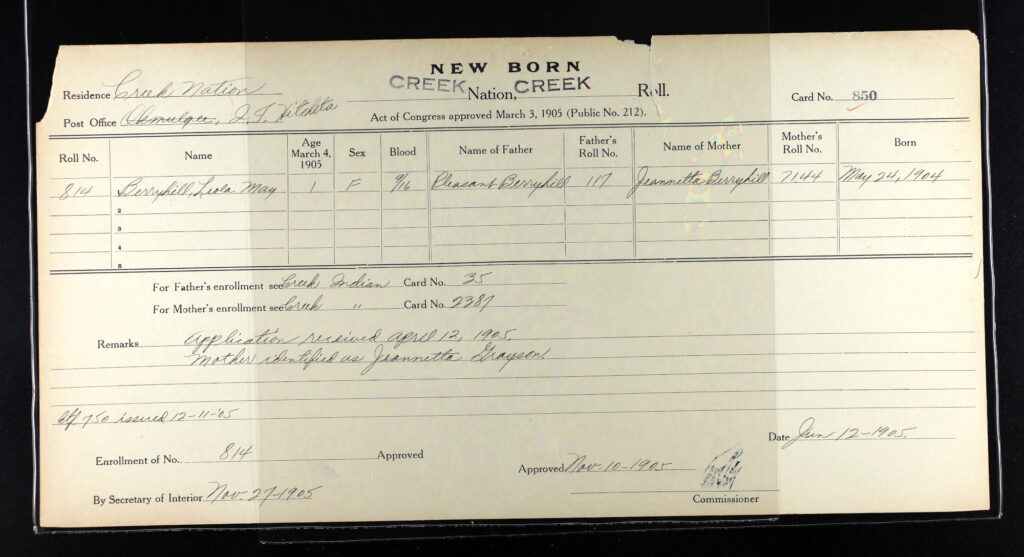 NEW BORN
CREEK Nation, CREEK Roll.
Residence Creek Nation Card No. 850
Post Office Okmulgee, I.T. Hitchita Act of Congress approved March 3, 1905 (Public No. 212).
Roll No. Name Age March 4, 1905 Sex Blood Name of Father Father's Roll No. Name of Mother Mother's Roll No. Born
814 Berryhill, Leola May 1 F 9/16 Pleasant Berryhill 117 Jeannetta Berryhill 7144 May 24, 1904
2
3
4
5
For Father's enrollment see Creek Indian Card No. 35
For Mother's enrollment see Creek " Card No. 2387
Remarks Application received April 12, 1905.
Mother identified as Jeannetta Grayson.
750 issued 12-11-05
Date Jun 12-1905.
Enrollment of No. 814 Approved
Approved Nov-10-1905
By Secretary of Interior Nov. 27-1905
Commissioner